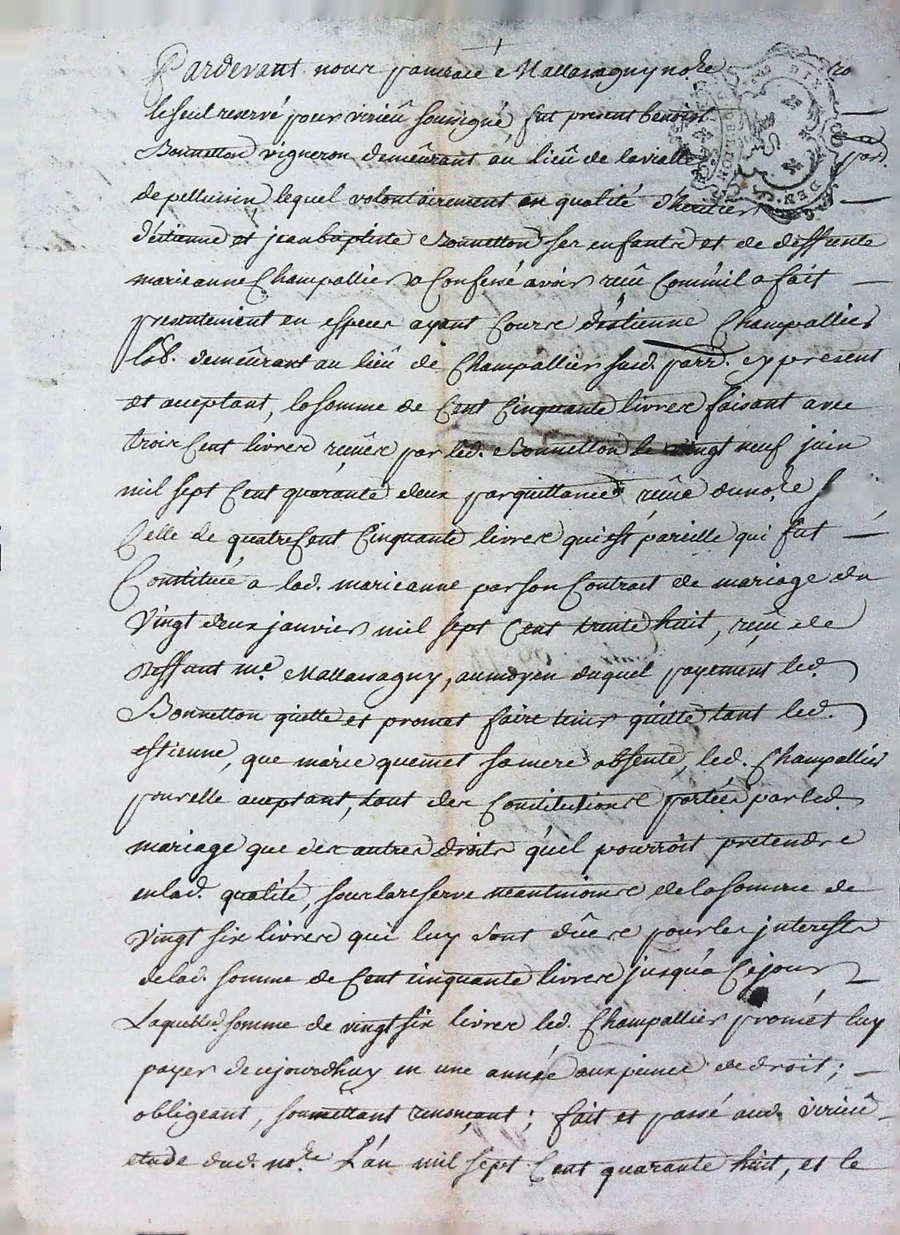 Pardevant nous pancrace Mallassagny no.re ro.
le seul reservé pour virieu soussigné, fut present benoit
Bonnetton vigneron demeûrant au lieû de lavialle par.
de pellussin lequel volontairement en qualité d'heritier
d'estienne et jean baptiste Bonnetton ses enfants et de deffunte
marieanne Champallier a Confessé avoir reçû Comm'il a fait
presentement en especes ayant Cours d'estienne Champallier
lab. demeûrant au lieû de Champallier susd. parr. cy present
et aceptant, la somme de Cent Cinquante livres faisant avec
trois Cent livres reçües par led. Bonnetton le vingt neuf juin
mil sept Cent quarante deux par quittance reçüe dud. no.re
Celle de quatre Cent Cinquante livres qui est pareille qui fut
Constituée a lad. marieanne par son Contract de mariage du
Vingt deux janvier mil sept Cent trente huit, reçû de
deffunt me. Mallassagny, au moyen duquel payement led.
Bonnetton quitte et promet faire tenir quitte tant led.
estienne, que marie quemet sa mere absente led. Champallier
pour elle aceptant, tant des Constitutions portées par led.
mariage que des autres droits qu'el pourroit pretendre
en lad. qualité, sous la reserve neantmoins de la somme de
Vingt six livres qui luy sont dües pour les interests
de lad. somme de Cent cinquante livres jusqu'a Cejour
Laquelled. somme de vingt six livres led. Champallier promet luy
payer de cejourdhuy en une année aux peines de droit ;
obligeant, soumettant renonçant ; fait et passé aud. virieû
etude dud. no.re L'an mil sept Cent quarante huit, et le